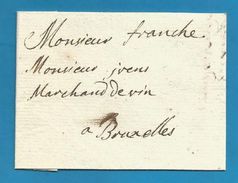 Monsieur franche
Monsieur jrens
Marchand de vin
a Bruxelles